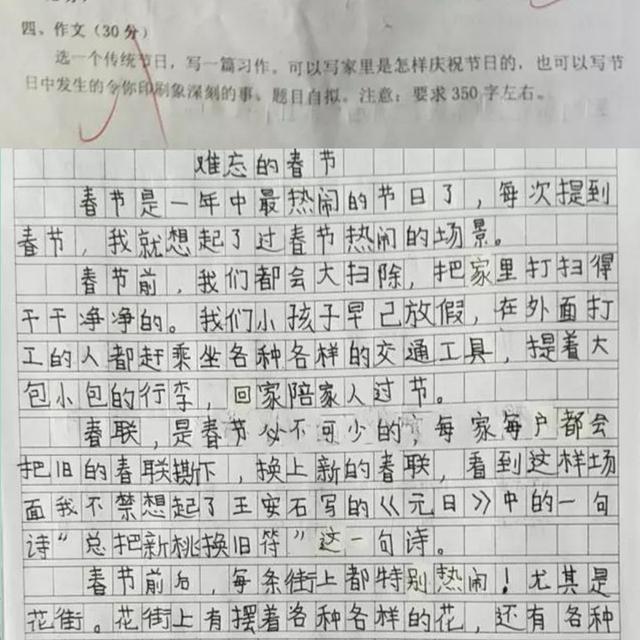 四、作文(30分)
选一个传统节日，写一篇习作。可以写家里是怎样庆祝节日的，也可以写节
日中发生的令你印刷象深刻的事。题目自拟。注意：要求350字左右。
难忘的春节
春节是一年中最热闹的节日了，每次提到
春节，我就想起了过春节热闹的场景。
春节前，我们都会大扫除，把家里打扫得
干干净净的。我们小孩子早已放假，在外面打
工的人都赶乘坐各种各样的交通工具，提着大
包小包的行李，回家陪家人过节。
春联，是春节必不可少的，每家每户都会
把旧的春联撕下，换上新的春联，看到这样场
面我不禁想起了王安石写的《元日》中的一句
诗“总把新桃换旧符”这一句诗。
春节前后，每条街上都特别热闹！尤其是
花街。花街上有摆着各种各样的花，还有各种